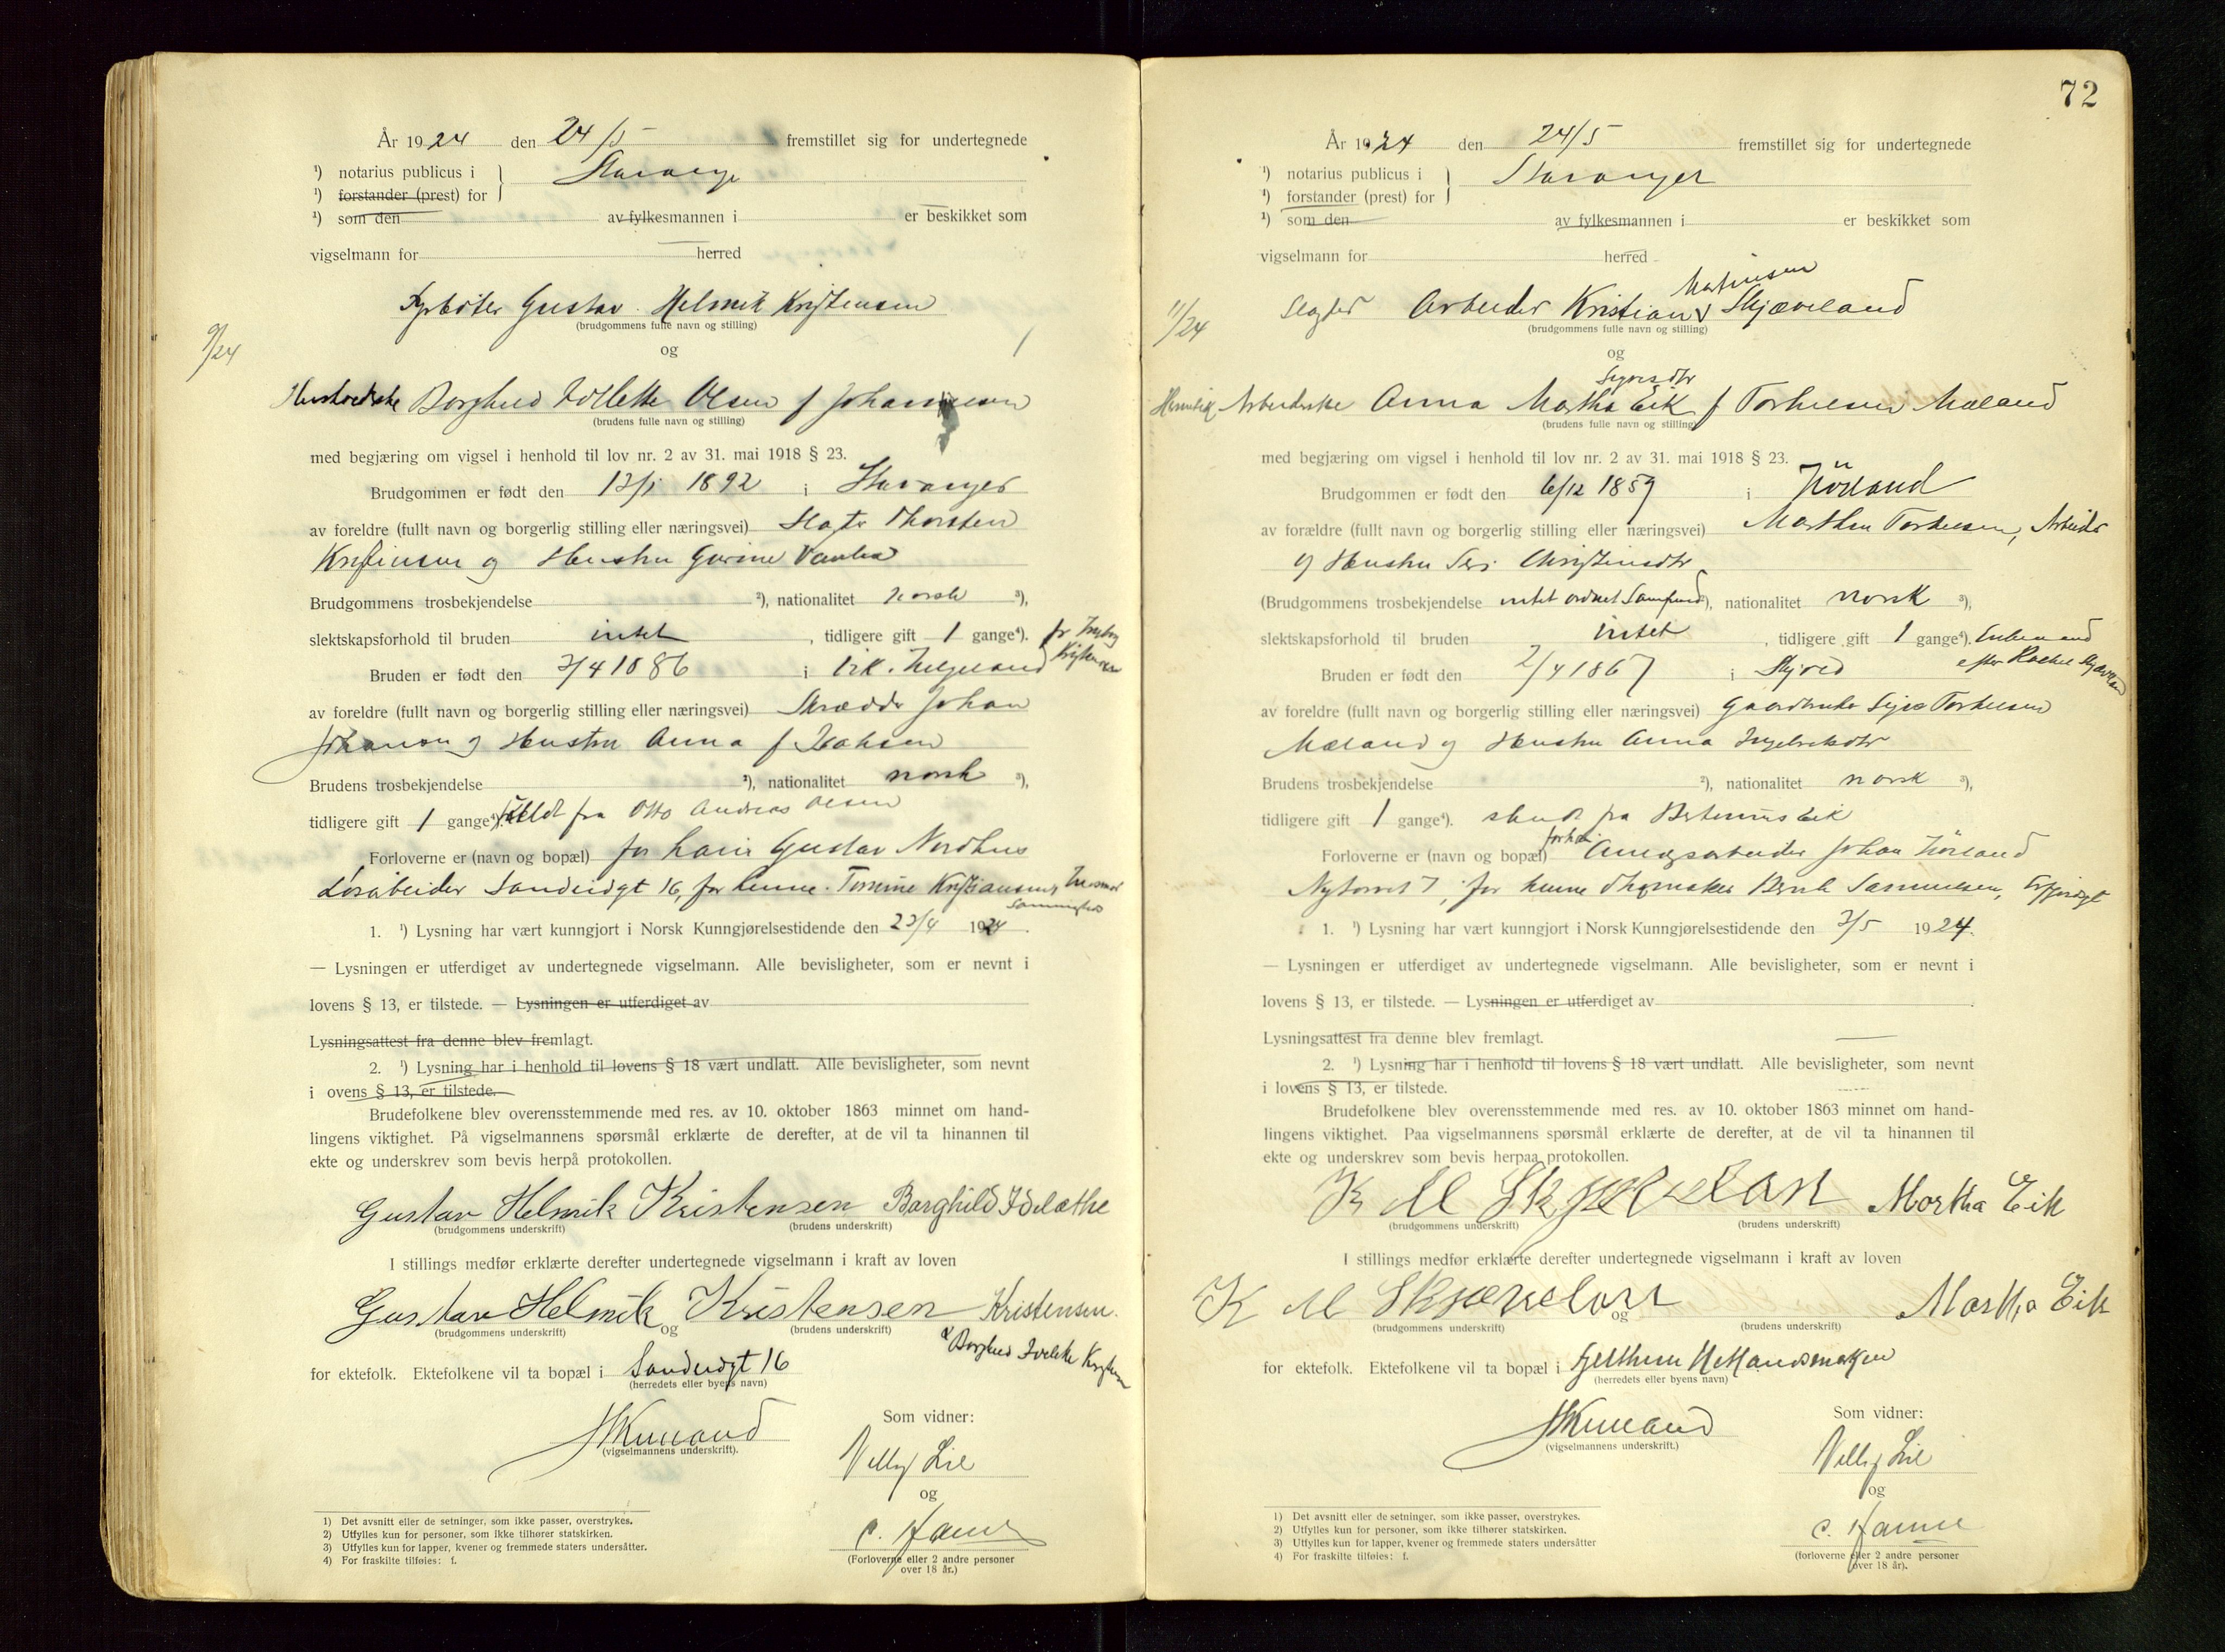 År 1924 den 24/5 fremstillet sig for undertegnede
¹) notarius publicus i } Stavanger
¹) forstander (prest) for
¹) som den av fylkesmannen i er beskikket som
vigselmann for herred
Fyrbøter Gustav Helmik Kristensen
(brudgommens fulle navn og stilling)
9/24
og
Borghild Olsen f Johannesen
(brudens fulle navn og stilling)
med begjæring om vigsel i henhold til lov nr. 2 av 31. mai 1918 § 23.
Brudgommen er født den 1892 i Stavanger
av foreldre (fullt navn og borgerlig stilling eller næringsvei) Thorsten
og Hustru Gurine
Brudgommens trosbekjendelse ²), nationalitet norsk ³),
slektskapsforhold til bruden intet , tidligere gift 1 gange⁴).
Bruden er født den 3/4 1886 i
av foreldre (fullt navn og borgerlig stilling eller næringsvei) Skrædder Johan
og Hustru Anna f Isaksen
Brudens trosbekjendelse ²), nationalitet norsk ³),
tidligere gift 1 gange⁴). fra Otto Andreas Olsen
Forloverne er (navn og bopæl) for ham Gustav Nordhus
Løsarbeider Sandeidgt 16, for henne
1. ¹) Lysning har vært kunngjort i Norsk Kunngjørelsestidende den 23/4 1924.
— Lysningen er utferdiget av undertegnede vigselmann. Alle bevisligheter, som er nevnt i
lovens § 13, er tilstede. — Lysningen er utferdiget av
Lysningsattest fra denne blev fremlagt.
2. ¹) Lysning har i henhold til lovens § 18 vært undlatt. Alle bevisligheter, som nevnt
i ovens § 13, er tilstede.
Brudefolkene blev overensstemmende med res. av 10. oktober 1863 minnet om hand-
lingens viktighet. På vigselmannens spørsmål erklærte de derefter, at de vil ta hinannen til
ekte og underskrev som bevis herpå protokollen.
Gustav Helmik Kristensen Borghild Idelathe
(brudgommens underskrift) (brudens underskrift)
I stillings medfør erklærte derefter undertegnede vigselmann i kraft av loven
Gustav Helmik Kristensen Kristensen.
(brudgommens underskrift) og (brudens underskrift)
for ektefolk. Ektefolkene vil ta bopæl i Sandeidgt 16
(herredets eller byens navn)
(vigselmannens underskrift).
Som vidner:
Villy Lie
og
C. Hanne
(Forloverne eller 2 andre personer
over 18 år.)
1) Det avsnitt eller de setninger, som ikke passer, overstrykes.
2) Utfylles kun for personer, som ikke tilhører statskirken.
3) Utfylles kun for lapper, kvener og fremmede staters undersåtter.
4) For fraskilte tilføies: f.
72
År 1924 den 24/5 fremstillet sig for undertegnede
¹) notarius publicus i } Stavanger
¹) forstander (prest) for
¹) som den av fylkesmannen i er beskikket som
vigselmann for herred
11/24
Arbeider Kristian Skjæveland
(brudgommens fulle navn og stilling)
og
Anna Martha Eik f Torkelsen Mæland
(brudens fulle navn og stilling)
med begjæring om vigsel i henhold til lov nr. 2 av 31. mai 1918 § 23.
Brudgommen er født den 6/12 1859 i
av forældre (fullt navn og borgerlig stilling eller næringsvei) Torkelsen, Arbeider
og Hustru
(Brudgommens trosbekjendelse intet ordnet Samfund), nationalitet norsk ³),
slektskapsforhold til bruden intet , tidligere gift 1 gange⁴). Enkemand
Bruden er født den 2/4 1867 i
av foreldre (fullt navn og borgerlig stilling eller næringsvei) Gaardbruker Torkelsen
Mæland og Hustru Anna
Brudens trosbekjendelse ²), nationalitet norsk ³),
tidligere gift 1 gange⁴). fra Eik
Forloverne er (navn og bopæl) for ham Johan
Nytorvet 7, for henne Samuelsen,
1. ¹) Lysning har vært kunngjort i Norsk Kunngjørelsestidende den 3/5 1924.
— Lysningen er utferdiget av undertegnede vigselmann. Alle bevisligheter, som er nevnt i
lovens § 13, er tilstede. — Lysningen er utferdiget av
Lysningsattest fra denne blev fremlagt.
2. ¹) Lysning har i henhold til lovens § 18 vært undlatt. Alle bevisligheter, som nevnt
i lovens § 13, er tilstede.
Brudefolkene blev overensstemmende med res. av 10. oktober 1863 minnet om hand-
lingens viktighet. Paa vigselmannens spørsmål erklærte de derefter, at de vil ta hinannen til
ekte og underskrev som bevis herpaa protokollen.
K M Martha Eik
(brudgommens underskrift) (brudens underskrift)
I stillings medfør erklærte derefter undertegnede vigselmann i kraft av loven
K M Martha Eik
(brudgommens underskrift) og (brudens underskrift)
for ektefolk. Ektefolkene vil ta bopæl i
(herredets eller byens navn)
(vigselmannens underskrift.)
Som vidner:
Villy Lie
og
C. Hanne
(forloverne eller 2 andre personer
over 18 år).
1) Det avsnitt eller de setninger, som ikke passer, overstrykes.
2) Utfylles kun for personer, som ikke tilhører statskirken.
3) Utfylles kun for lapper, kvener og fremmede staters undersåtter
4) For fraskilte tilføies: f.